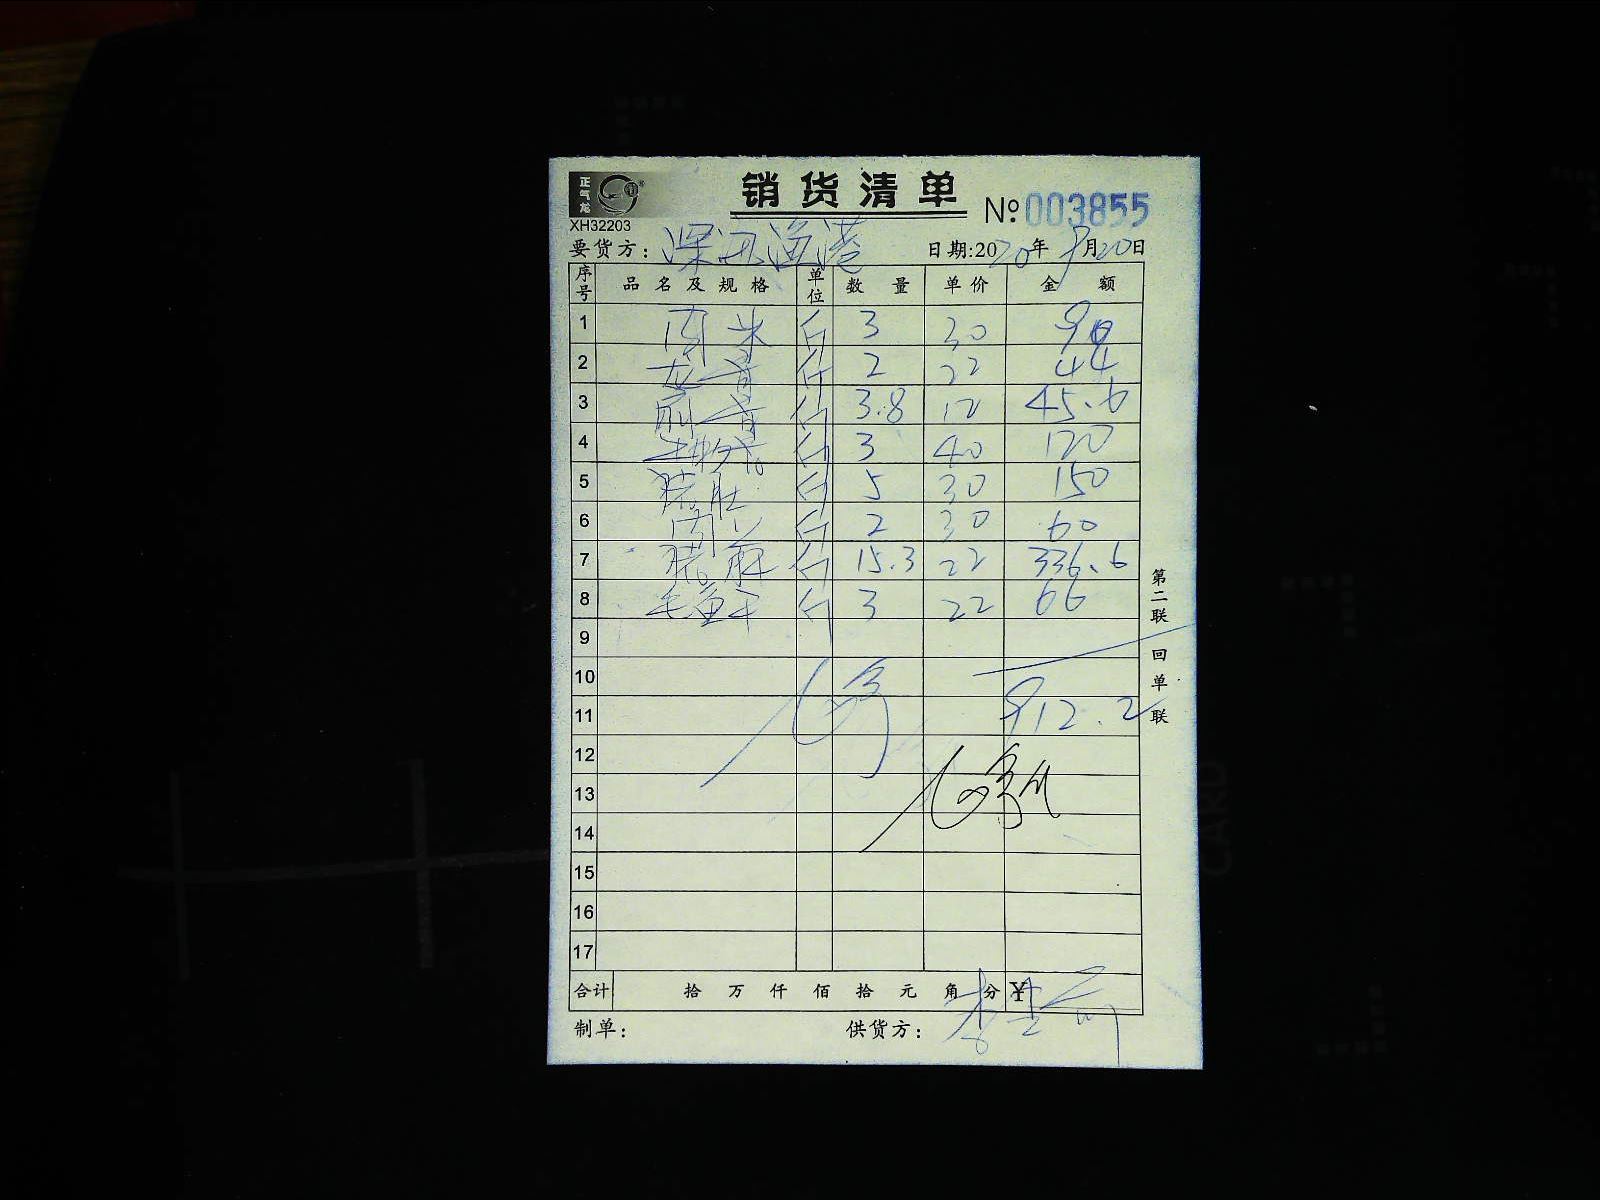 正气龙
销货清单
XH32203
No 003855
要货方: 深 渔港 日期:2020年9月20日
序号 品名及规格 单位 数量 单价 金额
1 肉米 斤 3 30 90
2 龙骨 斤 2 22 44
3 前骨 斤 3.8 12 45.6
4 斤 3 40 120
5 猪肚 斤 5 30 150
6 肉 斤 2 30 60
7 猪 斤 15.3 22 336.6
8 斤 3 22 66
9
10
11 912.2
12
13
14
15
16
17
合计 拾 万 仟 佰 拾 元 角 分 ¥
制单: 供货方: 李
第二联 回单联